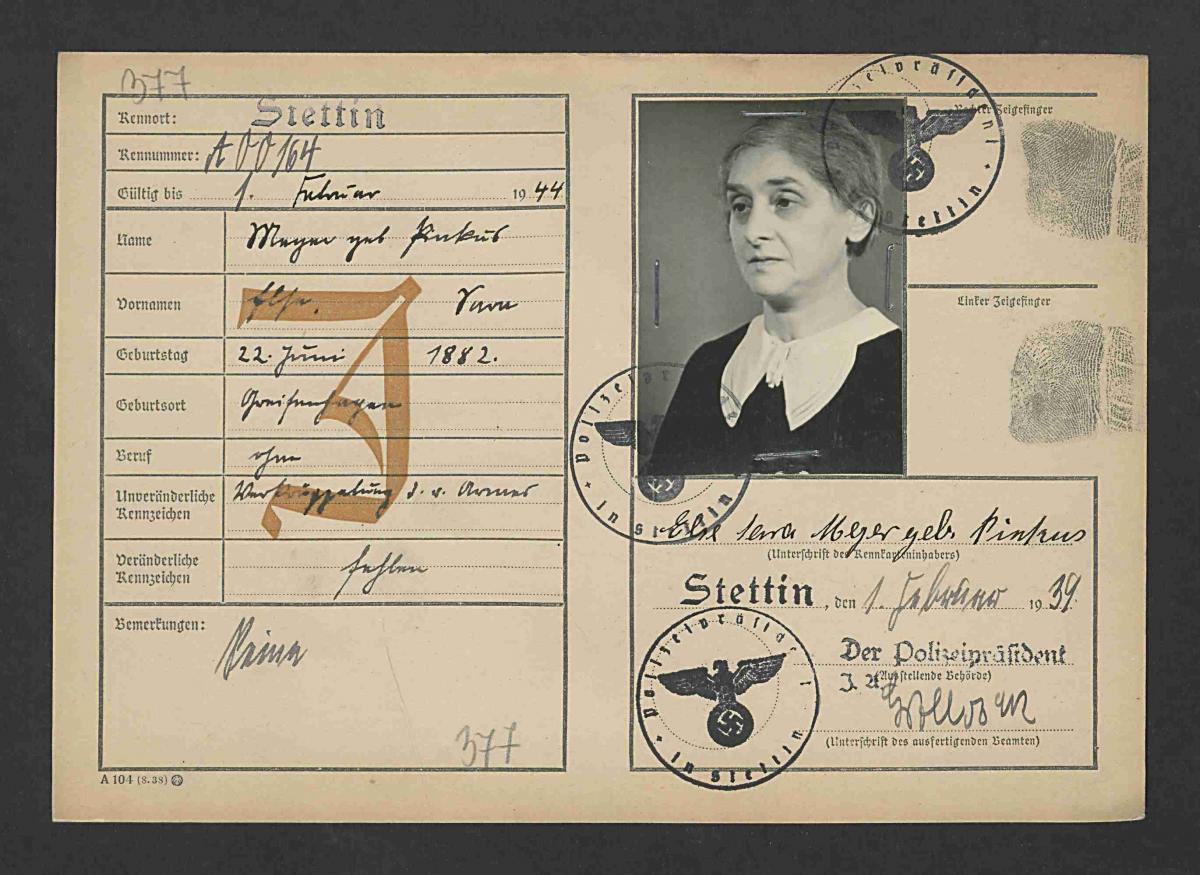 377
Kennort: Stettin
Kennummer: A 00164
Gültig bis 1. Februar 1944
Name Meyer geb Pinkus
Vornamen Else. Sara
Geburtstag 22. Juni 1882.
Geburtsort Greifenhagen
Beruf ohne
Unveränderliche Kennzeichen Verkrüppelung d. r. Armes
Veränderliche Kennzeichen fehlen
Bemerkungen: Keine
377
A 104 (8. 38)
J
Polizeipräsident in Stettin
Rechter Zeigefinger
Linker Zeigefinger
Polizeipräsident in Stettin
Else Sara Meyer geb. Pinkus
(Unterschrift des Kennkarteninhabers)
Stettin, den 1. Februar 1939
Der Polizeipräsident
(Ausstellende Behörde)
J. A.
(Unterschrift des ausfertigenden Beamten)
Polizeipräsident in Stettin